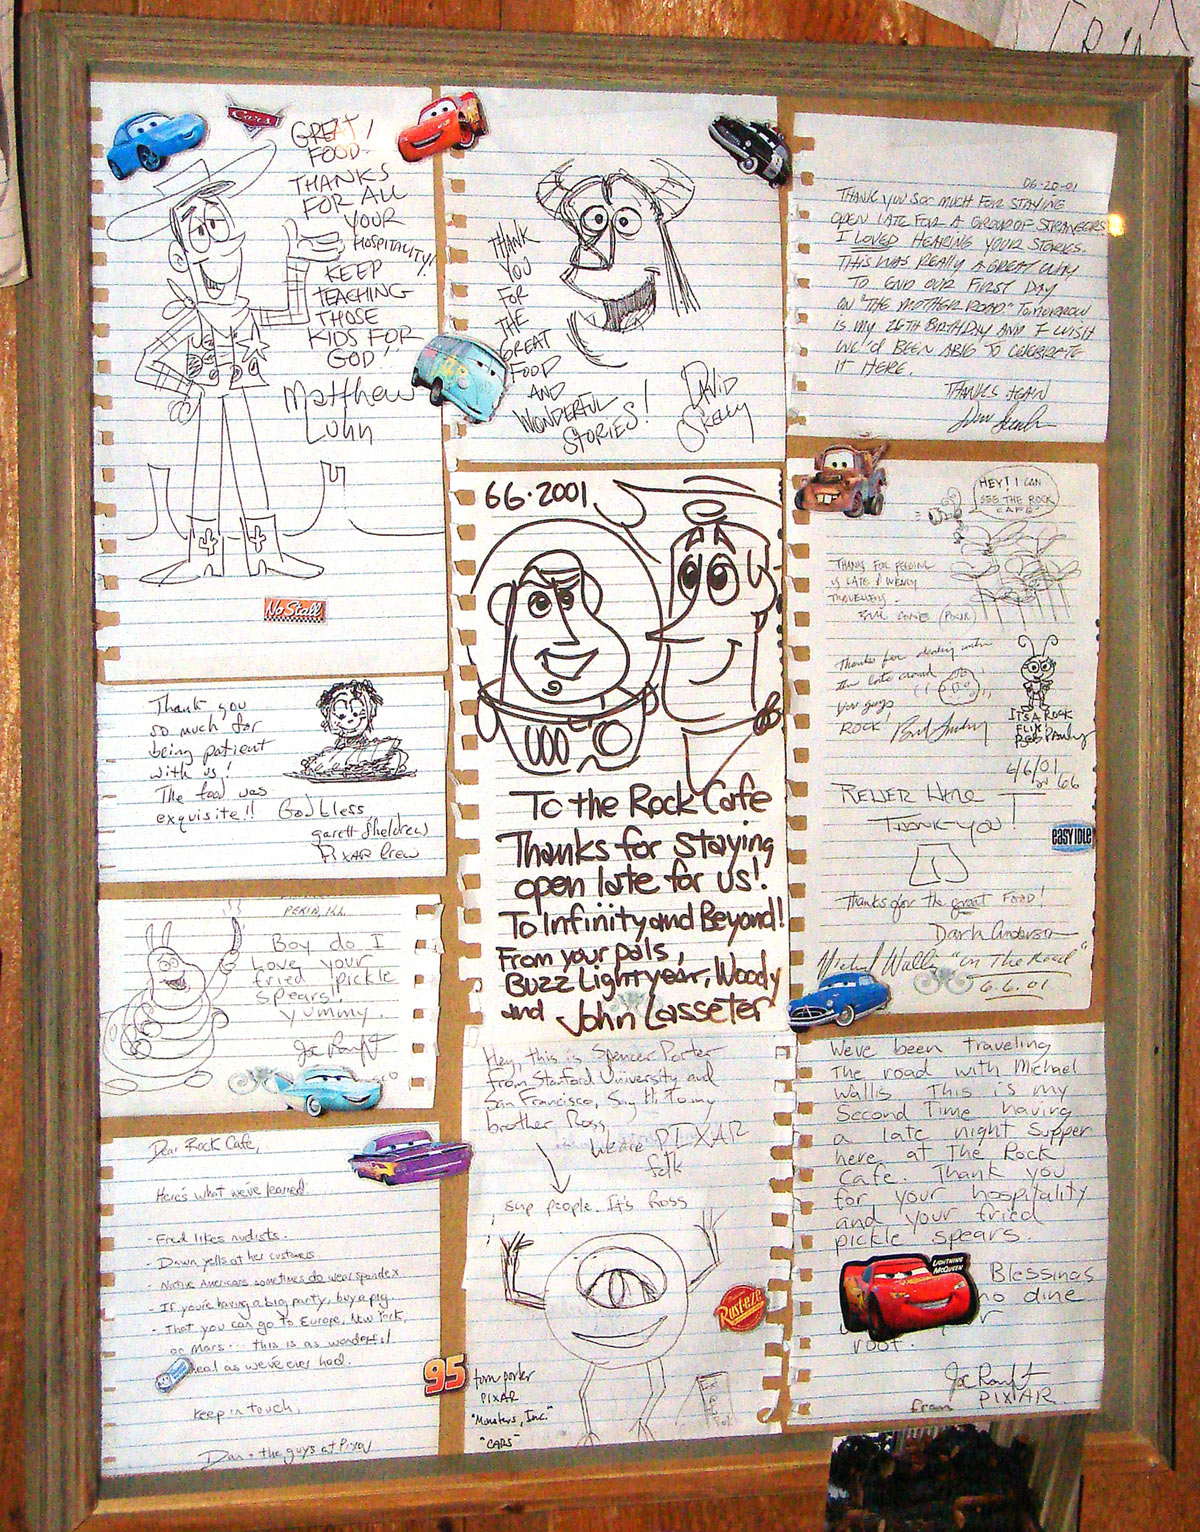 Cars
GREAT!
FOOD!
THANKS
FOR ALL
YOUR
HOSPITALITY!
KEEP
TEACHING
THOSE
KIDS FOR
GOD!
Matthew
Luhn
No Stall
THANK
YOU
FOR
THE
GREAT
FOOD
AND
WONDERFUL
STORIES!
DAVID
SKELLY
06-20-01
THANK YOU SO MUCH FOR STAYING
OPEN LATE FOR A GROUP OF STRANGERS
I LOVED HEARING YOUR STORIES.
THIS WAS REALLY A GREAT WAY
TO END OUR FIRST DAY
ON "THE MOTHER ROAD." TOMORROW
IS MY 26TH BIRTHDAY AND I WISH
WE'D BEEN ABLE TO CELEBRATE
IT HERE.
THANKS AGAIN
66·2001
To the Rock Cafe
Thanks for staying
open late for us!
To Infinity and Beyond!
From your pals,
Buzz Lightyear, Woody
and John Lasseter
HEY! I CAN
SEE THE ROCK
CAFE!
THANKS FOR FEEDING
US LATE & WEARY
TRAVELLERS.
(PIXAR)
Thanks for dealing with
the late crowd
you guys
ROCK!
IT'S A ROCK
FLIK!
Bob Pauley
6/6/01
on 66
THANK-YOU!
EASY IDLE
Thanks for the great FOOD!
Darla Anderson
Michael Wallis "On The Road"
6.6.01
Thank you
so much for
being patient
with us!
The food was
exquisite!!
God bless
garett Sheldrew
PIXAR Crew
PEKIN, ILL.
Boy do I
Love your
fried pickle
spears!
yummy.
Joe Ranft
Dear Rock Cafe,
Here's what we've learned:
- Fred likes nudists.
- Dawn yells at her customers
- Native Americans sometimes do wear spandex
- If you're having a big party, buy a pig.
- That you can go to Europe, New York,
or Mars... this is as wonderful
meal as we've ever had.
keep in touch,
Dan + the guys at Pixar
95
Hey, this is Spencer Porter
from Stanford University and
San Francisco, Say Hi To my
brother Ross,
We are PIXAR
folk
sup people. It's Ross
Rusteze
tom porter
PIXAR
"Monsters, Inc."
"CARS"
We've been traveling
The road with Michael
Wallis. This is my
Second Time having
a late night supper
here at The Rock
Cafe. Thank you
for your hospitality
and your fried
pickle spears.
LIGHTNING
McQUEEN
Blessings
no dine
root.
Joe Ranft
from PIXAR